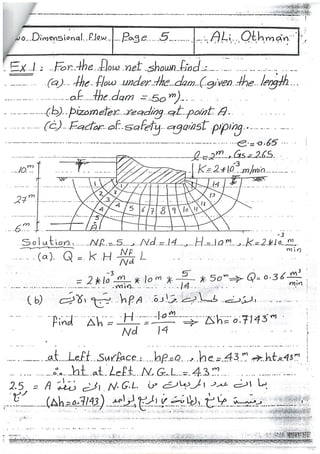 wo. Dimensional Flow. Page 5 ALi Othman
Ex 1: For the flow net shown find:
(a) the flow under the dam (given the length
of the dam = 50 m).
(b) Pizometer reading at point A.
(c) Factor of safety against piping.
e = 0.65
l = 2m, Gs = 2.65
K = 2*10⁻³ m/min
10m
27m
6m
1 2 3 4 5 6 7 8 9 10 11 12 14
1 2 3 4 5
A
Solution: Nf = 5, Nd = 14, H = 10m, K = 2*10⁻³ m/min
(a). Q = K H Nf/Nd L
= 2*10⁻³ m/min * 10 m * 5/14 * 50 m ⇒ Q = 0.36 m³/min
(b) hpA قراءة لحساب
find Δh = H/Nd = 10m/14 ⇒ Δh = 0.7143 m
at Left Surface: hp = 0, he = 43 m → ht = 43 m
∴ ht at Left N.G.L = 43 m
2.5 = A نقطة الى N.G.L من عدد
(Δh = 0.7143)